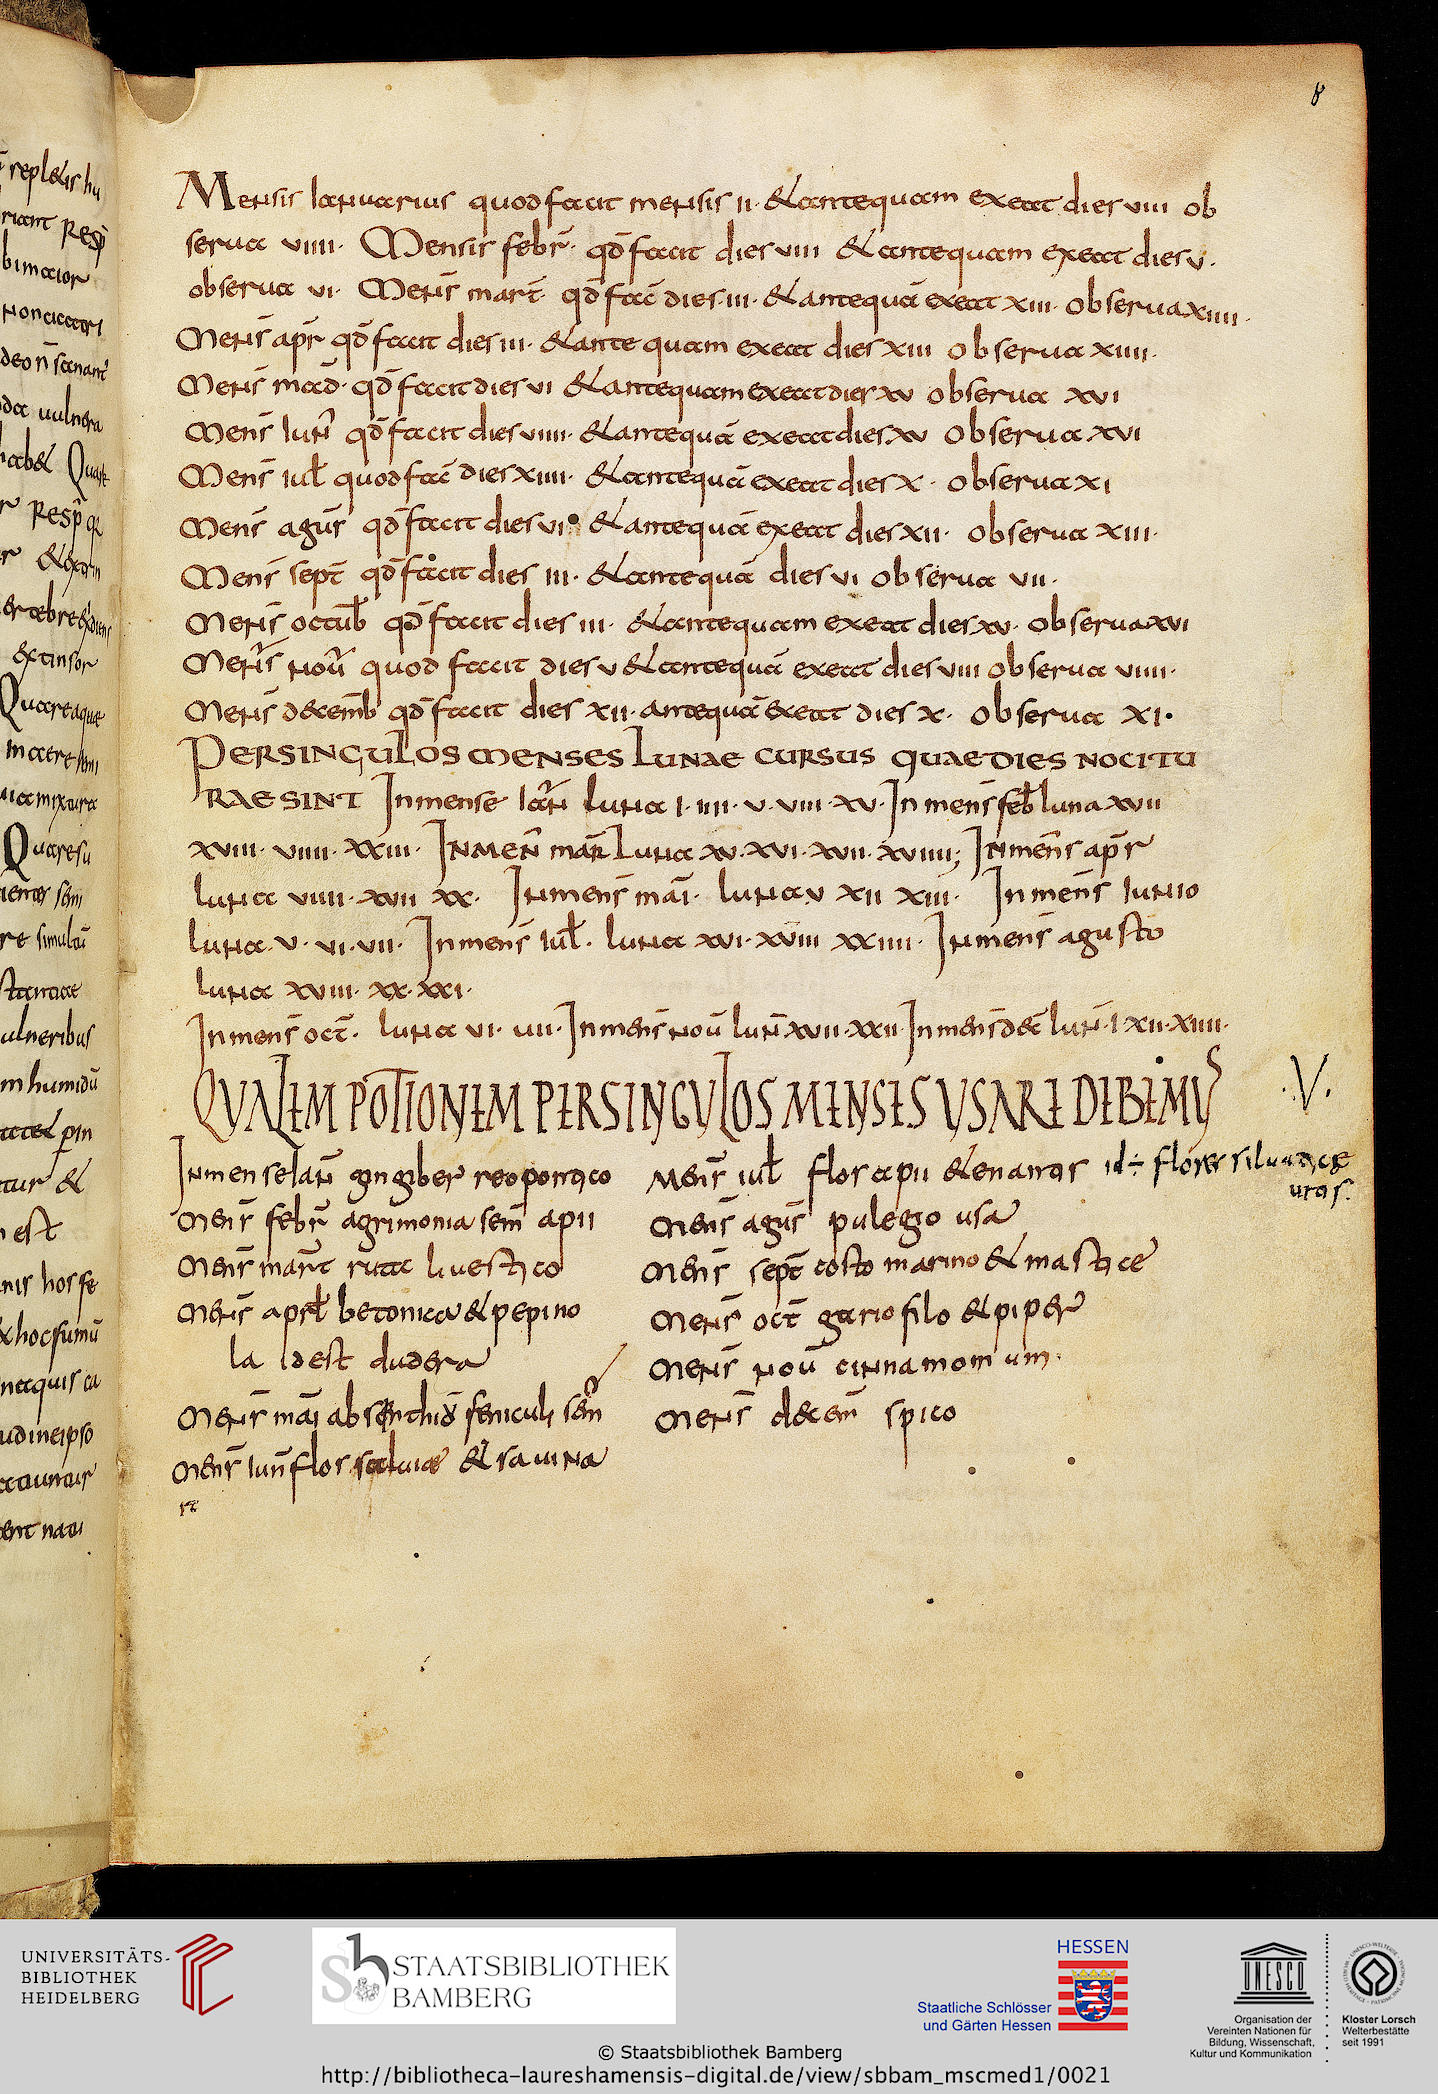 8
Mensis Ianuarius quod facit mensis II· & antequam exeat dies VIII ob
serua VIIII· Mensis febr̄· qđ facit dies VIII & antequam exeat dies V·
obserua VI· Mens̄ mart̄ qđ fac̄ dies·III· & antequā exeat XIII· obserua XIIII·
Mens̄ apr̄ qđ facit dies III· & ante quam exeat dies XIII obserua XIIII·
Mens̄ mad̄· qđ facit dies VI & antequam exeat dies XV obserua XVI
Mens̄ Iun̄ qđ facit dies VIIII· & antequā exeat dies XV obserua XVI
Mens̄ iul̄ quod fac̄ dies XIIII· & antequā exeat dies X· obserua XI
Mens̄ agus̄ qđ facit dies VI· & antequā exeat dies XII· obserua XIII·
Mens̄ sept̄ qđ facit dies III· & antequā dies VI obserua VII·
Mens̄ octub̄ qđ facit dies III· & antequam exeat dies XV· obserua XVI
Mens̄ nou̅ quod facit dies V & antequā exeat dies VIII obserua VIIII·
Mens̄ decemb̄ qđ facit dies XII· antequā exeat dies X· obserua XI·
PERSINGULOS MENSES LUNAE CURSUS QUAE DIES NOCITU
RAE SINT In mense Ian̄ luna I·IIII·V·VIII·XV· In mens̄ feb̄ luna XVII
XVIII·VIIII·XXIII· IN MEN̄ mar̄ Luna XV·XVI·XVII·XVIIII; In mens̄ apr̄
luna VIIII·XVII XX· In mens̄ mai̅· luna V XII XIII· In mens̄ Iunio
luna·V·VI·VII· In mens̄ Iul̄· luna XVI·XVIII XXIIII· In mens̄ agusto
luna XVIII·XX·XXI·
In mens̄ oct̄· luna VI·VII· In mens̄ nou̅ lun̄ XVII·XXII· In mens̄ dec̄ lun̄·I·XII·XIIII·
QUALEM POTIONEM PER SINGULOS MENSES USARE DEBEMUS
·V·
In mense Ian̄ gingiber reopontico
Mens̄ febr̄ agrimonia sem̄ apii
Mens̄ mart̄ ruta liuestico
Mens̄ aprl̄ betonica & pepino
la idest dudera
Mens̄ mai̅ absenthio feniculi sem̄
Mens̄ iun̄ flor saluiae & sauina
Mens̄ iul̄ flor apii & enantas id÷ flores siluaticae
uuas·
Mens̄ agus̄ pulegio usa
Mens̄ sept̄ costo marino & mastice
Mens̄ oct̄ gariofilo & piper
Mens̄ nou̅ cinnamomum·
Mens̄ decem̄ spico
UNIVERSITÄTS-
BIBLIOTHEK
HEIDELBERG
STAATSBIBLIOTHEK
BAMBERG
HESSEN
Staatliche Schlösser
und Gärten Hessen
UNESCO
Organisation der
Vereinten Nationen für
Bildung, Wissenschaft,
Kultur und Kommunikation
Kloster Lorsch
Welterbestätte
seit 1991
© Staatsbibliothek Bamberg
http://bibliotheca-laureshamensis-digital.de/view/sbbam_mscmed1/0021